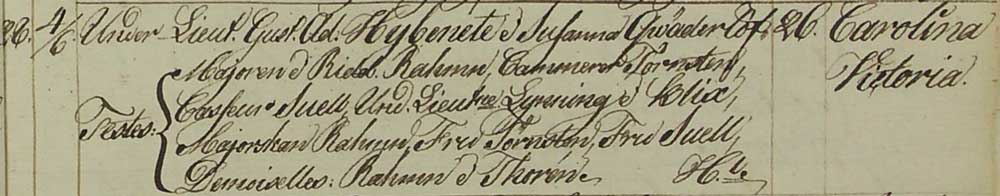 28. 4/6. Under-Lieut. Gust. Ad. Hybenete & Susanna Ghöäder Cof. 26. Carolina
Majoren & Ridd. Rahmn, Cammerer Törnsten, Victoria.
Casseur Suell, Und. Lieutnre Lynning & Klix,
Testes: Majorskan Rahmn, Fru Törnsten, Fru Suell,
Demoiselles: Rahmn & Thorén. H.lr.